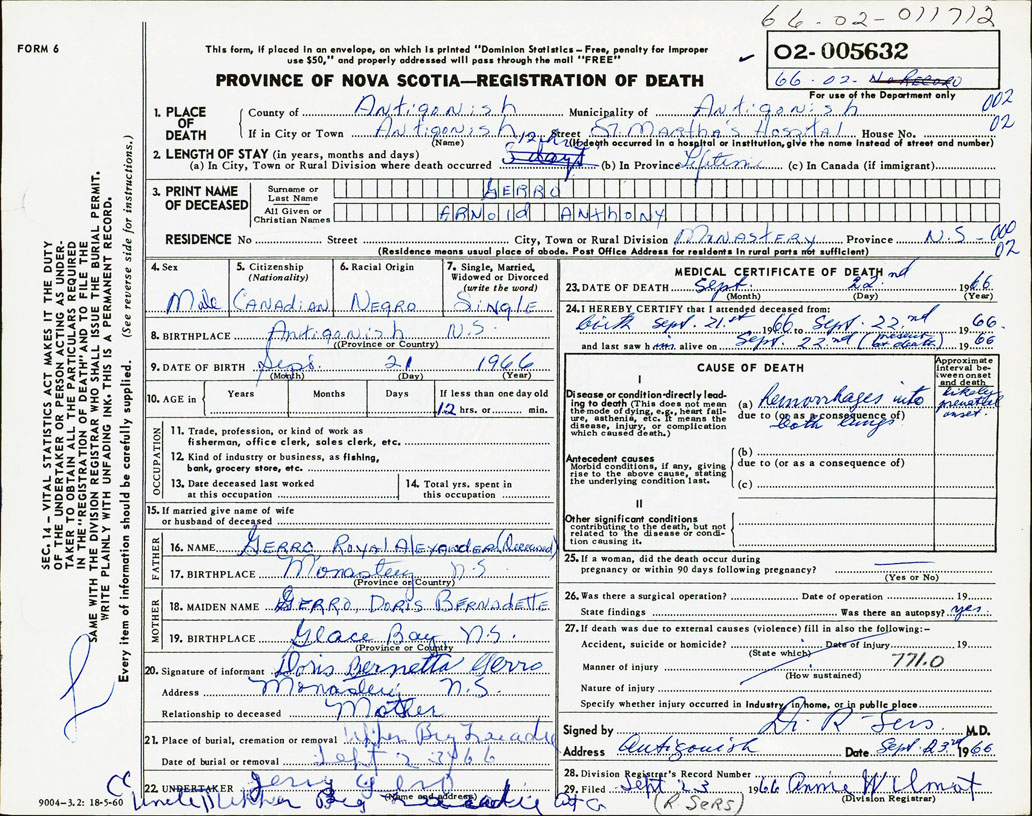 66-02-011712
FORM 6
This form, if placed in an envelope, on which is printed "Dominion Statistics – Free, penalty for improper
use $50," and properly addressed will pass through the mail "FREE"
02-005632
66-02- No RECORD
PROVINCE OF NOVA SCOTIA—REGISTRATION OF DEATH
For use of the Department only
002
02
1. PLACE OF DEATH County of Antigonish Municipality of Antigonish
If in City or Town Antigonish Street St. Martha's Hospital House No.
(Name) (If death occurred in a hospital or institution, give the name instead of street and number)
2. LENGTH OF STAY (in years, months and days) 12 hrs
(a) In City, Town or Rural Division where death occurred 3 days (b) In Province Lifetime (c) In Canada (if immigrant)
3. PRINT NAME OF DECEASED
Surname or Last Name GERRO
All Given or Christian Names ARNOLD ANTHONY
RESIDENCE No Street City, Town or Rural Division MONASTERY Province N.S - 000
02
(Residence means usual place of abode. Post Office Address for residents in rural parts not sufficient)
SEC. 14 – VITAL STATISTICS ACT MAKES IT THE DUTY
OF THE UNDERTAKER OR PERSON ACTING AS UNDER-
TAKER TO OBTAIN ALL THE PARTICULARS REQUIRED
IN THE "REGISTRATION OF DEATH" AND TO FILE THE
SAME WITH THE DIVISION REGISTRAR WHO SHALL ISSUE THE BURIAL PERMIT.
WRITE PLAINLY WITH UNFADING INK. THIS IS A PERMANENT RECORD.
Every item of information should be carefully supplied. (See reverse side for instructions.)
4. Sex Male
5. Citizenship (Nationality) CANADIAN
6. Racial Origin NEGRO
7. Single, Married, Widowed or Divorced (write the word) SINGLE
8. BIRTHPLACE Antigonish N.S.
(Province or Country)
9. DATE OF BIRTH Sept. 21 1966
(Month) (Day) (Year)
10. AGE in Years Months Days If less than one day old
12 hrs. or min.
OCCUPATION
11. Trade, profession, or kind of work as
fisherman, office clerk, sales clerk, etc.
12. Kind of industry or business, as fishing,
bank, grocery store, etc.
13. Date deceased last worked
at this occupation
14. Total yrs. spent in
this occupation
15. If married give name of wife
or husband of deceased
FATHER
16. NAME GERRO ROYAL ALEXANDER (DECEASED)
17. BIRTHPLACE Monastery N.S.
(Province or Country)
MOTHER
18. MAIDEN NAME GERRO, DORIS BERNADETTE
19. BIRTHPLACE Glace Bay N.S.
(Province or Country)
20. Signature of informant Doris Bernetta Gerro
Address Monastery N.S.
Relationship to deceased Mother
21. Place of burial, cremation or removal Upper Big Tracadie
Date of burial or removal Sept 23/66
22. UNDERTAKER
(Name and address)
Big Tracadie
9004-3.2: 18-5-60
MEDICAL CERTIFICATE OF DEATH
23. DATE OF DEATH Sept. 22nd 1966
(Month) (Day)
24. I HEREBY CERTIFY that I attended deceased from:
birth Sept. 21st 1966 to Sept. 22nd 1966.
and last saw him alive on Sept. 22nd (present at death) 1966
CAUSE OF DEATH
Approximate interval between onset and death
I
Disease or condition directly lead-
ing to death (This does not mean
the mode of dying, e.g., heart fail-
ure, asthenia, etc. It means the
disease, injury, or complication
which caused death.)
(a) hemorrhages into both lungs
due to (or as a consequence of)
likely prenatal onset.
Antecedent causes
Morbid conditions, if any, giving
rise to the above cause, stating
the underlying condition last.
(b)
due to (or as a consequence of)
(c)
II
Other significant conditions
contributing to the death, but not
related to the disease or condi-
tion causing it.
25. If a woman, did the death occur during
pregnancy or within 90 days following pregnancy?
(Yes or No)
26. Was there a surgical operation? Date of operation 19
State findings Was there an autopsy? yes
27. If death was due to external causes (violence) fill in also the following:–
Accident, suicide or homicide? Date of injury 19
(State which)
Manner of injury 771.0
(How sustained)
Nature of injury
Specify whether injury occurred in Industry, in home, or in public place
Signed by Dr. R Sers M.D.
Address Antigonish Date Sept. 23rd 1966
28. Division Registrar's Record Number
29. Filed Sept 23 1966 Annie Wilmot
(R SERS) (Division Registrar)